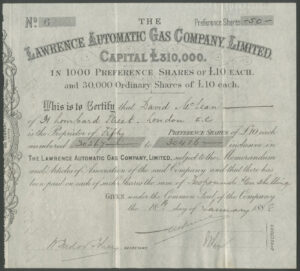 THE
No. 6 Preference Shares -50-
LAWRENCE AUTOMATIC GAS COMPANY, LIMITED.
CAPITAL £310,000.
IN 1000 PREFERENCE SHARES OF £10 EACH.
and 30,000 Ordinary Shares of £10 each.
This is to Certify that David McLean
of 31 Lombard Street, London E.C.
is the Proprietor of Fifty PREFERENCE SHARES of £10 each
numbered to inclusive in
THE LAWRENCE AUTOMATIC GAS COMPANY, LIMITED, subject to the Memorandum
and Articles of Association of the said Company and that there has
been paid on each of such Shares the sum of pounds Ten shilling
GIVEN under the Common Seal of the Company
the 18th day of January 188
SECRETARY
DIRECTORS